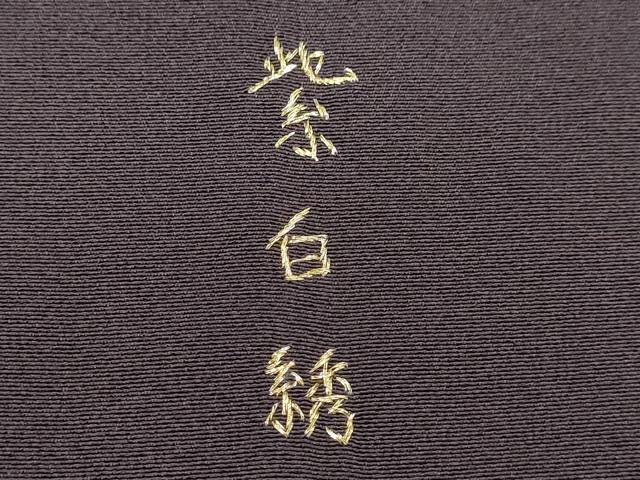 紫白綉